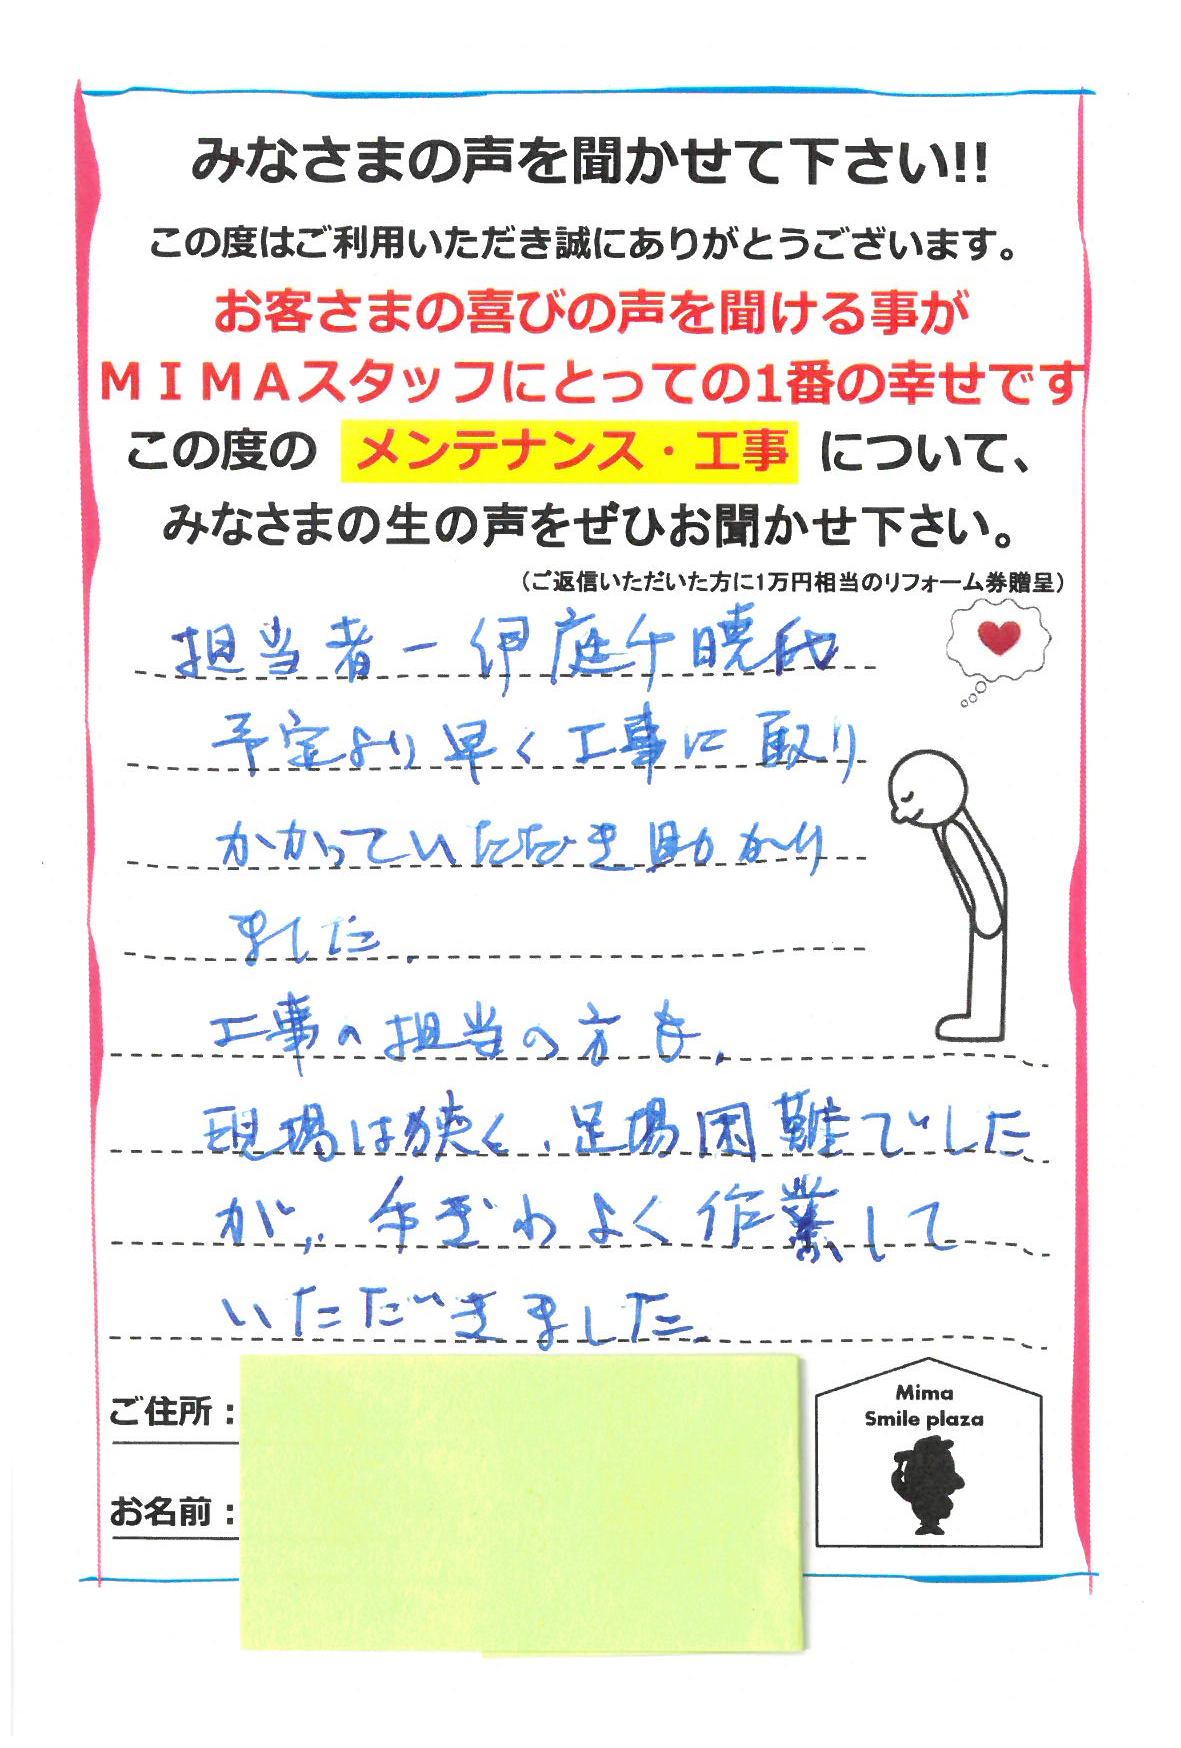 みなさまの声を聞かせて下さい!!
この度はご利用いただき誠にありがとうございます。
お客さまの喜びの声を聞ける事が
ＭＩＭＡスタッフにとっての1番の幸せです
この度の メンテナンス・工事 について、
みなさまの生の声をぜひお聞かせ下さい。
（ご返信いただいた方に1万円相当のリフォーム券贈呈）
担当者ー伊庭千暁氏
予定より早く工事に取り
かかっていただき助かり
ました.
工事の担当の方も、
現場は狭く、足場困難でした
が、手ぎわよく作業して
いただきました.
ご住所：
お名前：
Mima
Smile plaza